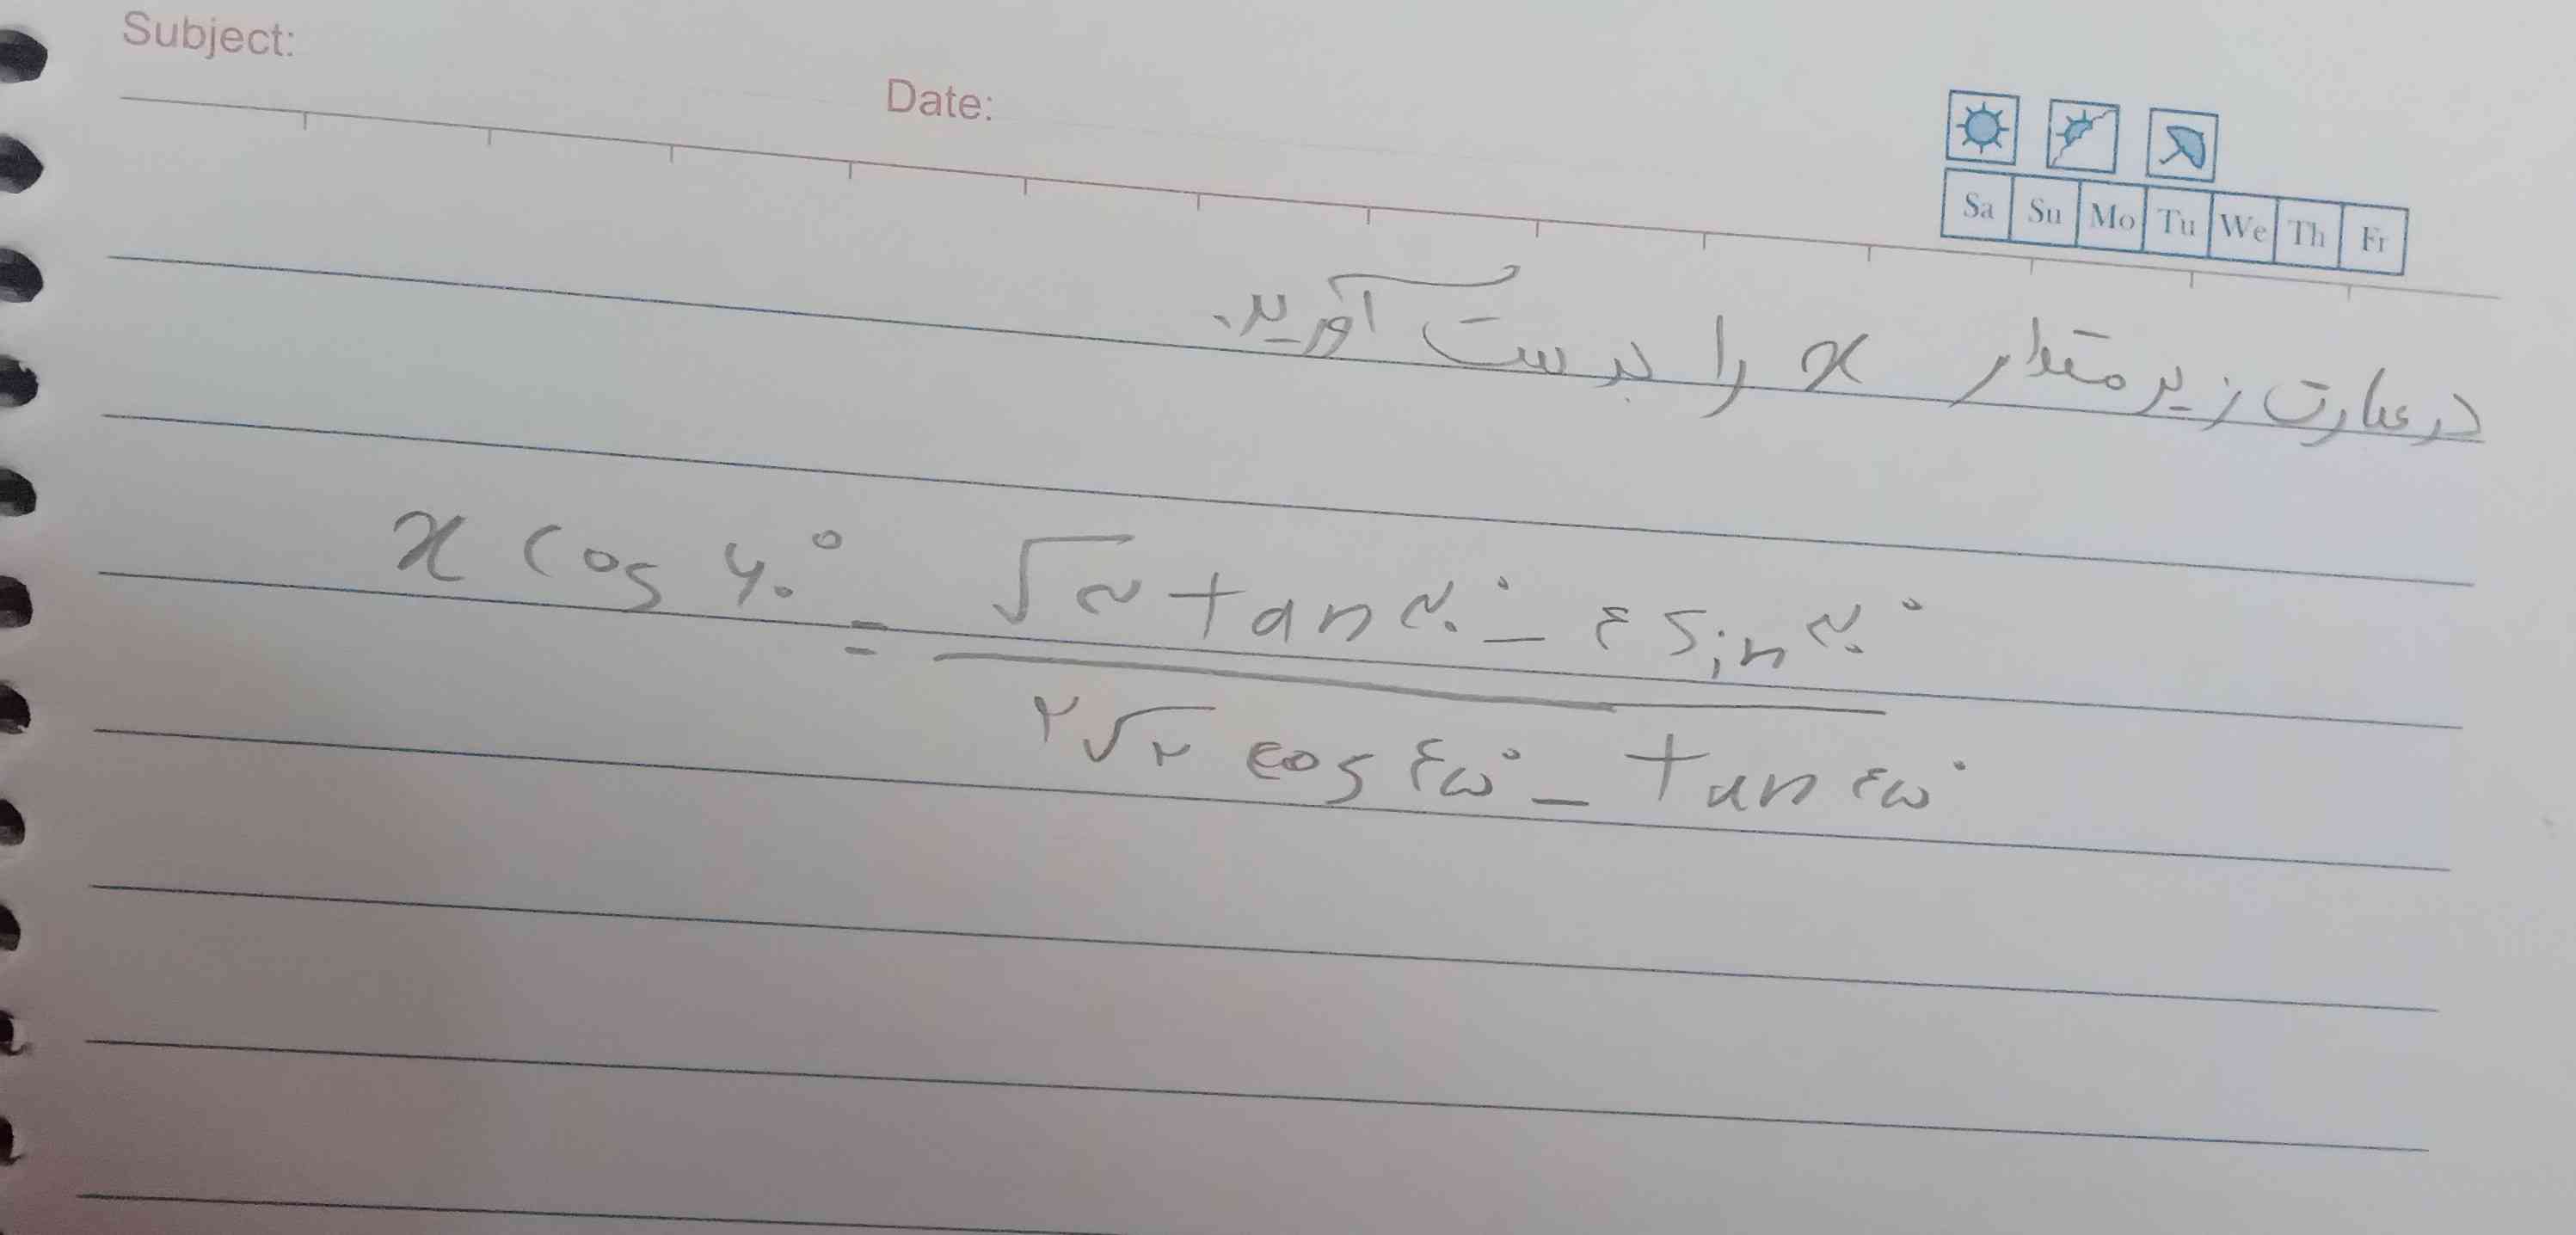 Subject:
Date:
Sa Su Mo Tu We Th Fr
در عبارت زیر مقدار x را بدست آورید.
x cos ۶۰° = (√۳ tan ۳۰° - ۴ sin ۳۰°) / (۲√۲ cos ۴۵° - tan ۴۵°)